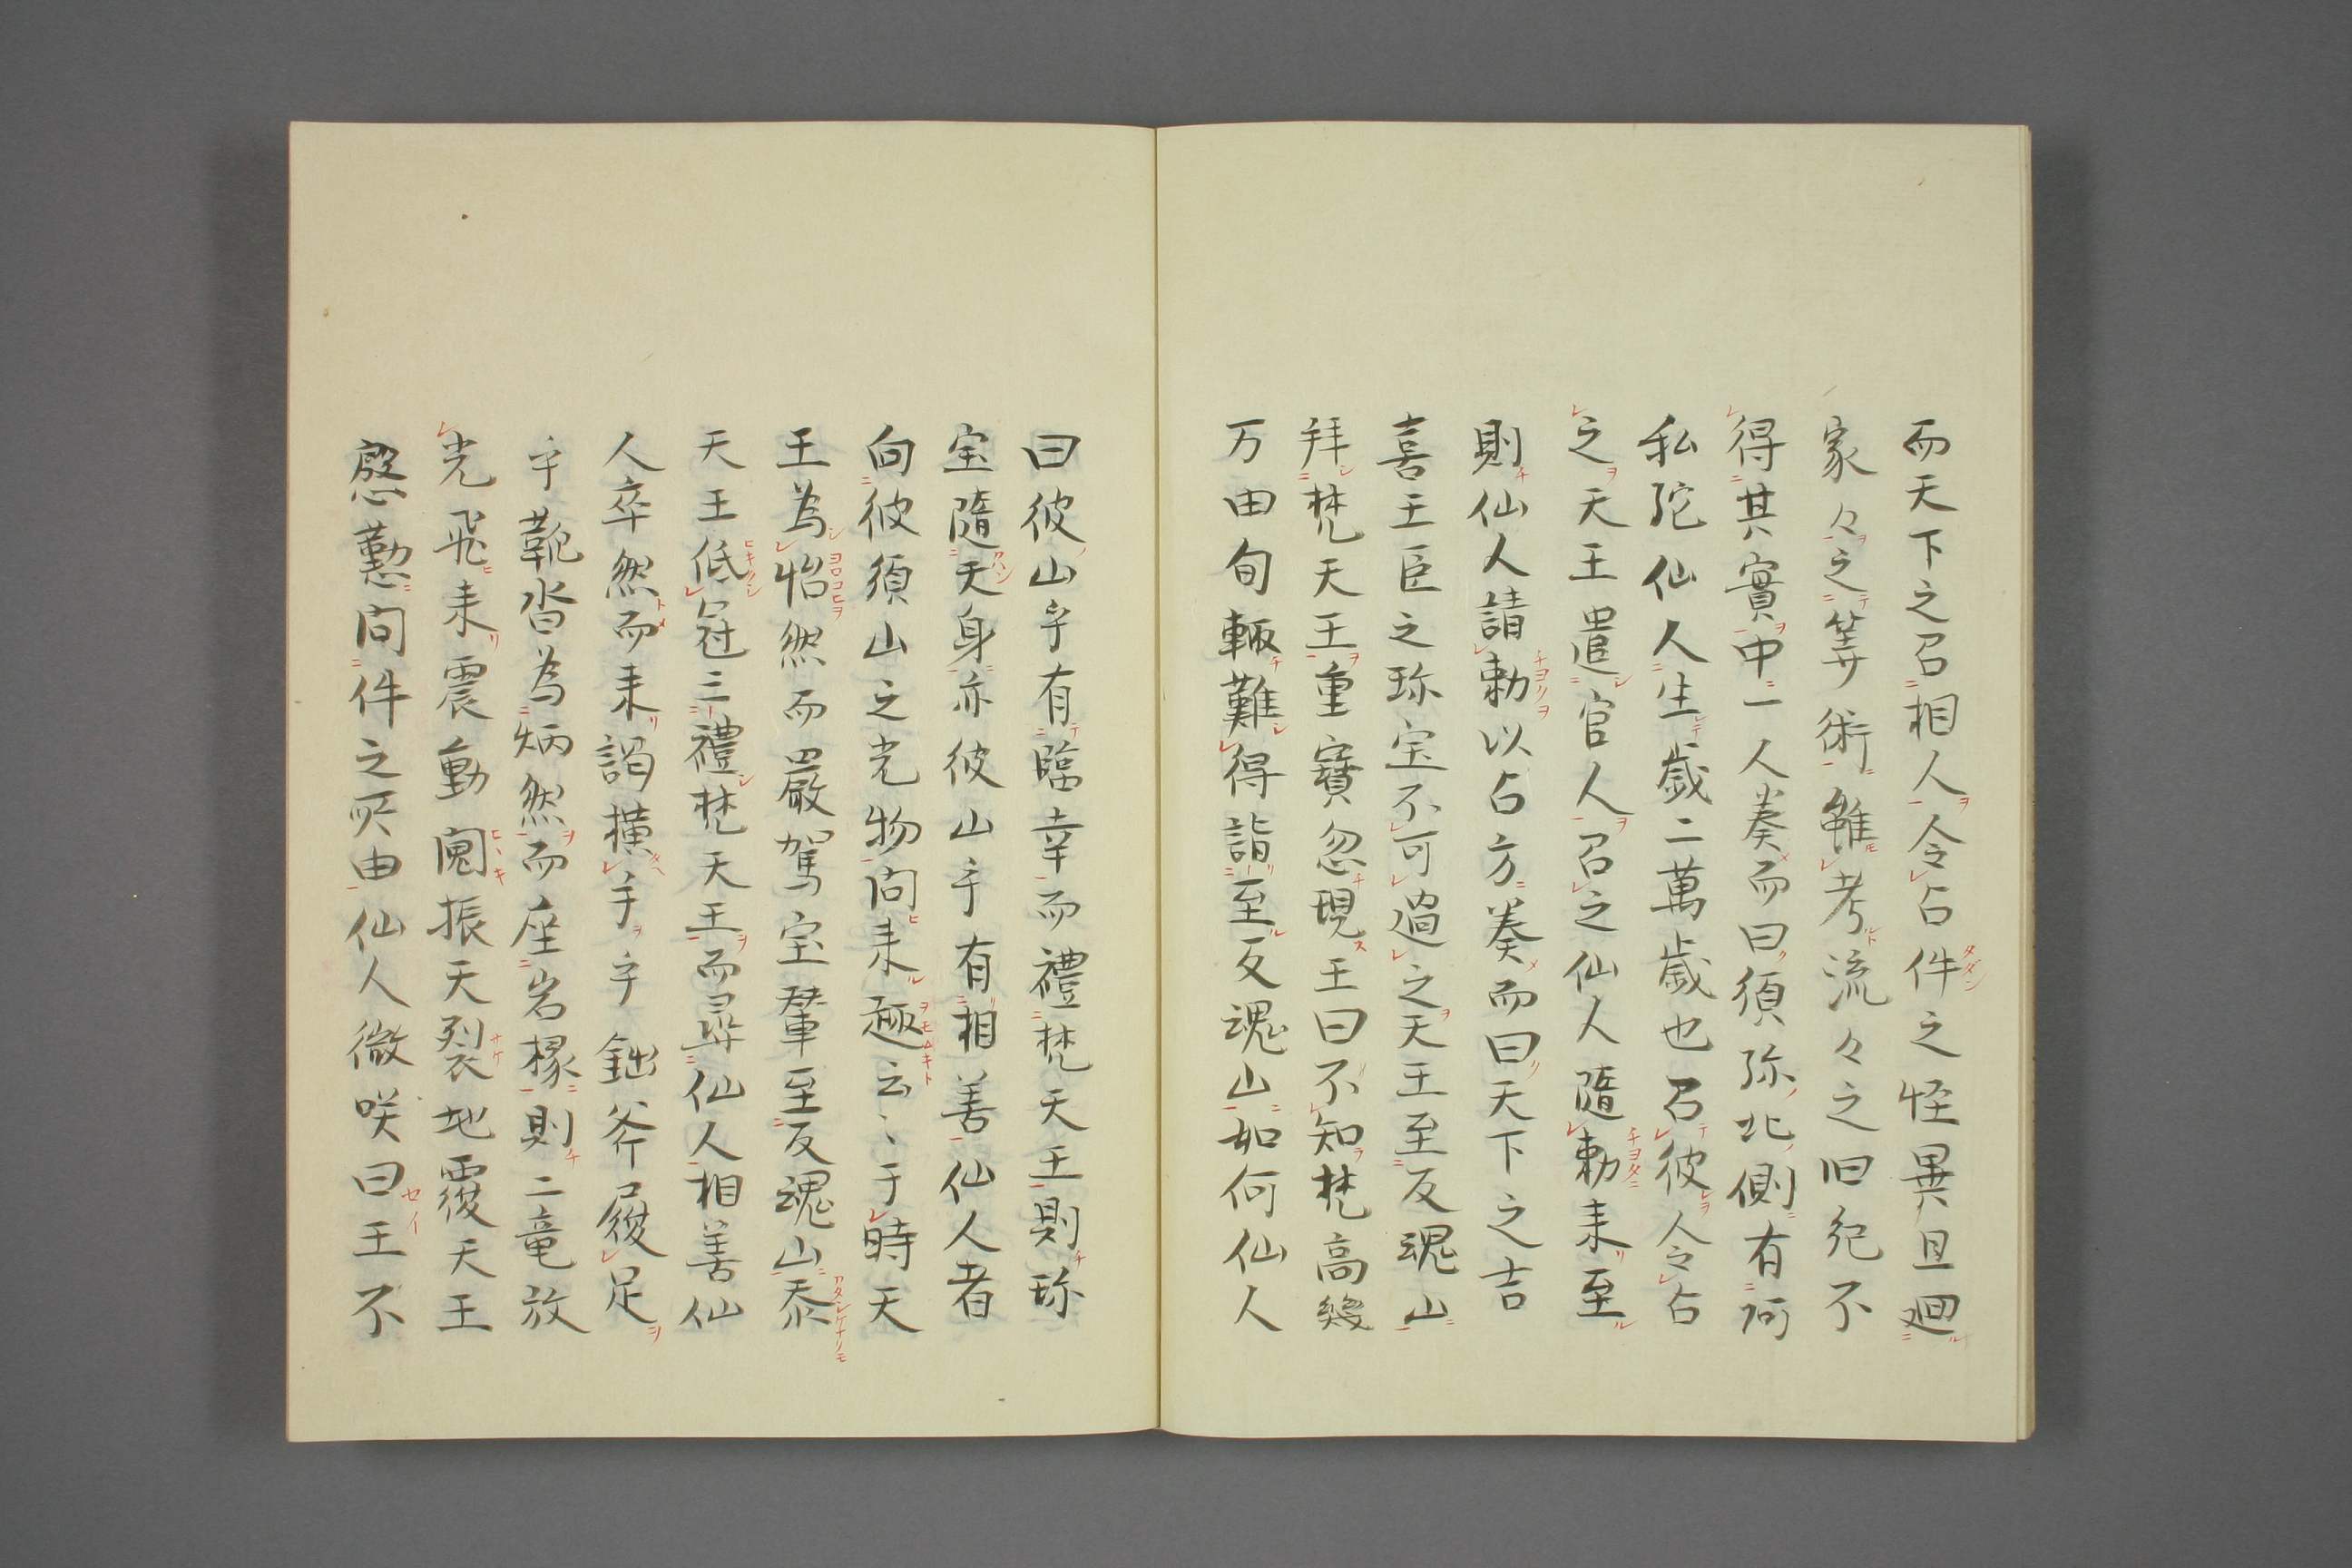 而天下之召相人令占件之怪異且廻
家々之筭術雖考流々之旧紀不
得其實中一人奏而曰須弥北側有阿
私陀仙人生歳二萬歳也召彼令占
之天王遣官人召之仙人隨勅来至
則仙人請勅以占方奏而曰天下之吉
喜王臣之珎宝不可過之天王至反魂山
拜梵天王重寶忽現王曰不知梵高幾
万由旬輙難得詣至反魂山如何仙人
曰彼山乎有臨幸而禮梵天王則珎
宝隨天身亦彼山乎有相善仙人者
向彼須山之光物問来趣云〻于時天
王為怡然而嚴駕宝輦至反魂山忝
天王低冠三禮梵天王而尋仙人相善仙
人卒然而来謁横手乎鈯斧履足
乎靴沓為炳然而座岩椽則二竜放
光飛来震動 振天裂地覆天王
慇懃問件之所由仙人微咲曰王不